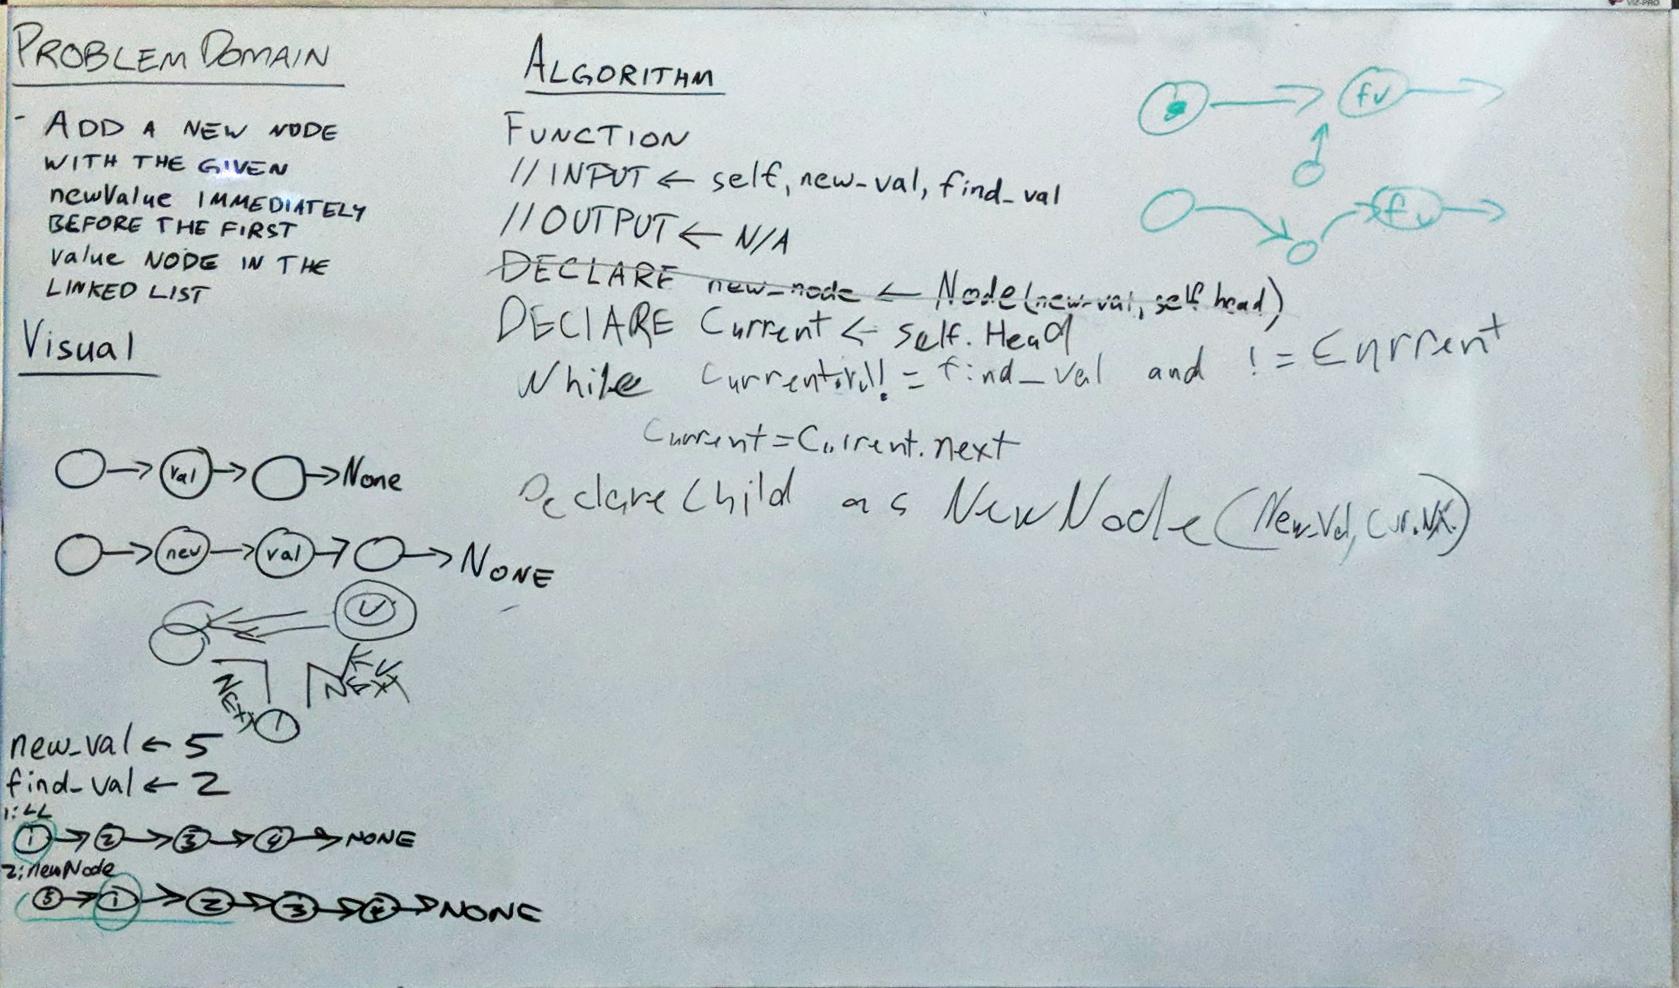 PROBLEM DOMAIN
- ADD A NEW NODE
WITH THE GIVEN
newValue IMMEDIATELY
BEFORE THE FIRST
value NODE IN THE
LINKED LIST
Visual
val None
new val NONE
V
NEXT
NEXT
1
new_val ← 5
find_val ← 2
1: LL
1 → 2 → 3 → 4 → NONE
2: newNode
5 → 1 → 2 → 3 → 4 → NONE
ALGORITHM
FUNCTION
// INPUT ← self, new_val, find_val
// OUTPUT ← N/A
DECLARE new_node ← Node(new-val, self.head)
DEClARE Current ← self.Head
While Current.val != find_val and != Current
Current = Current.next
Declare Child as NewNode(New_Val, Cur.NX.)
fv
fv